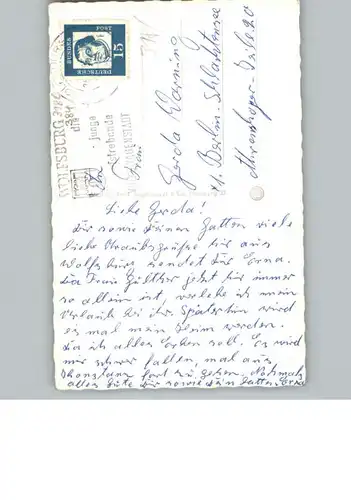 DEUTSCHE
BUNDESPOST
15
WOLFSBURG
3180
die
- junge
strebende
Frau
Gerda Warning
1 Berlin-Schlachtensee
Liebe Gerda!
Dir sowie Deinen Gatten viele
liebe Urlaubsgrüße hier aus
Wolfsburg sendet Dir Erna.
Da Frau Gülther jetzt für immer
so allein ist, verlebe ich mein
Urlaub bei ihr. Späterhin wird
es mal mein Heim werden.
Da ich alles Erben soll. Es wird
mir schwer fallen, mal aus
Konstanz fort zu gehen. Nochmals
alles Gute Dir sowie dein Gatten. Erna